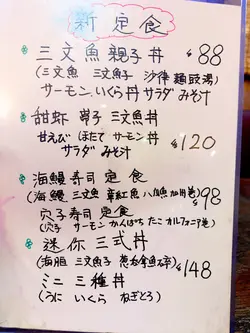 新定食
三文魚親子丼 ¥88
(三文魚 三文魚子 沙律 麺豉湯)
サーモンいくら丼 サラダ みそ汁
甜虾 帯子 三文魚丼
甘えび ほたて サーモン丼 ¥120
サラダ みそ汁
海鰻寿司定食
(海鰻 三文魚 章紅魚 八爪魚 加州巻) ¥98
穴子寿司 定食
(穴子 サーモン かんぱち たこ カルフォニア巻)
迷你 三式丼
(海胆 三文魚子 葱 魚) ¥148
ミニ 三種丼
(うに いくら ねぎとろ)